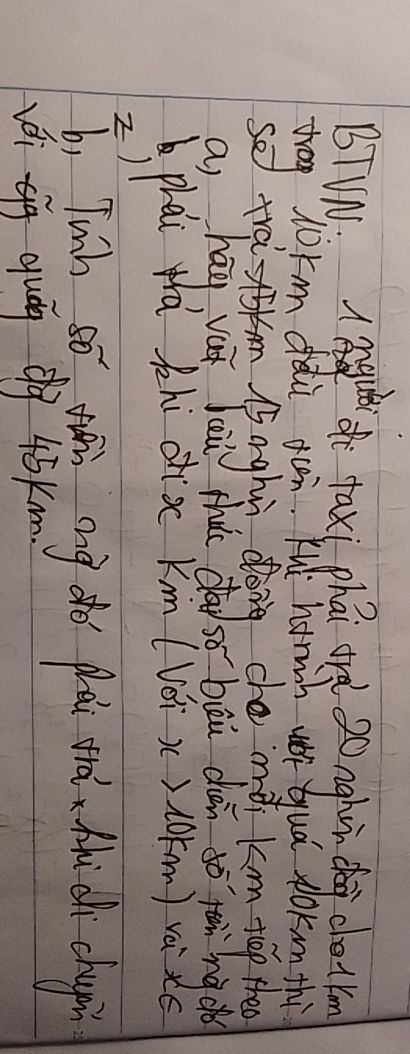 BTVN: 1 người đi taxi phải trả 20 nghìn đồng cho 1km
trong 10km đầu tiên. Khi htrình quá 10km thì
sẽ trả 15 nghìn đồng cho mỗi km tiếp theo
a, hãy viết biểu thức đại số biểu diễn số tiền ng đó
phải trả khi đi x km (với x > 10km) và x ∈
Z,
b, Tính số tiền ng đó phải trả khi di chuyển
với quãng đg 45km.